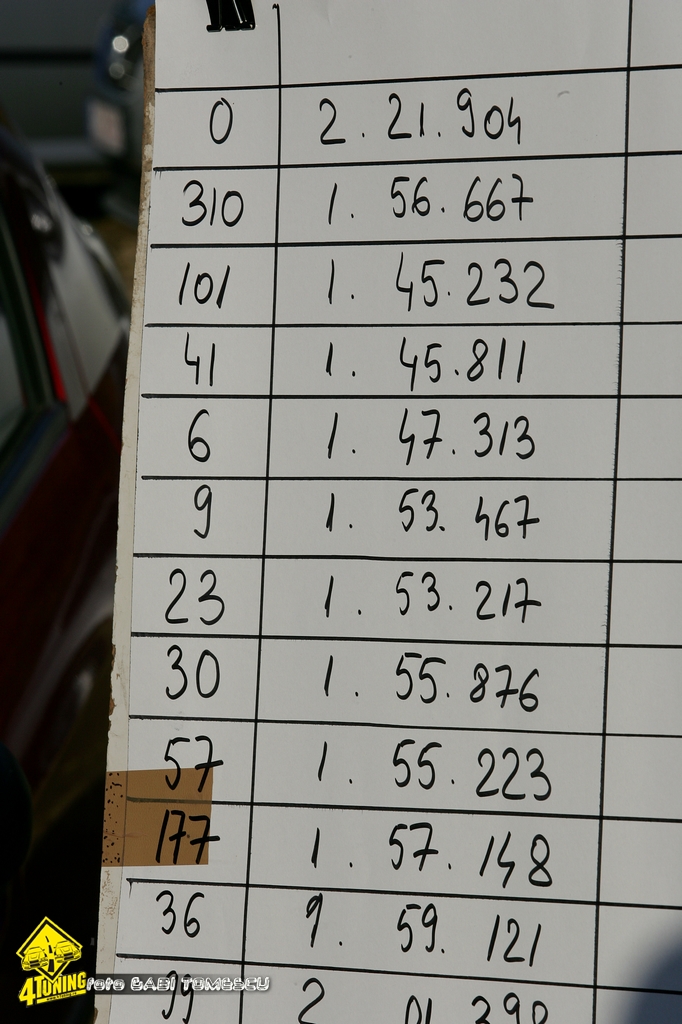 0 2. 21. 904
310 1. 56. 667
101 1. 45. 232
41 1. 45. 811
6 1. 47. 313
9 1. 53. 467
23 1. 53. 217
30 1. 55. 876
57 1. 55. 223
177 1. 57. 148
36 1. 59. 121
2
4TUNING foto GABI TOMESCU